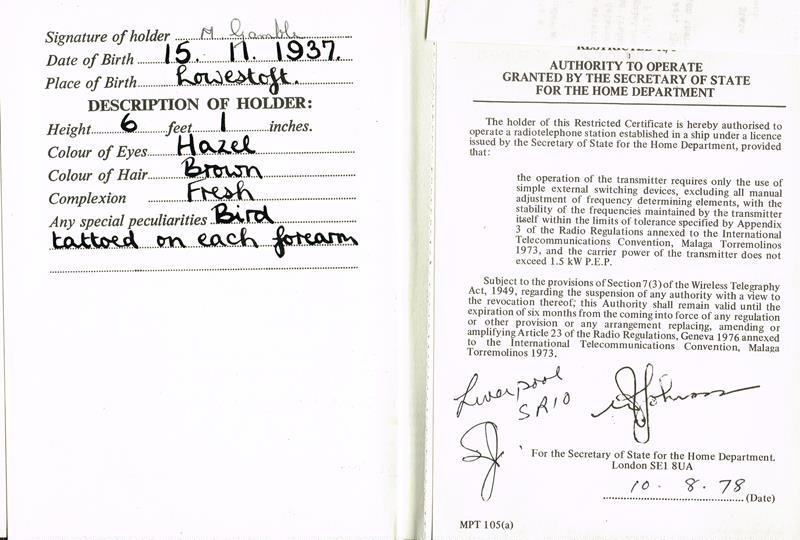 Signature of holder M Gamble
Date of Birth 15. 11. 1937.
Place of Birth Lowestoft.
DESCRIPTION OF HOLDER:
Height 6 feet 1 inches.
Colour of Eyes Hazel
Colour of Hair Brown
Complexion Fresh
Any special peculiarities Bird
tattoed on each forearm
AUTHORITY TO OPERATE
GRANTED BY THE SECRETARY OF STATE
FOR THE HOME DEPARTMENT
The holder of this Restricted Certificate is hereby authorised to
operate a radiotelephone station established in a ship under a licence
issued by the Secretary of State for the Home Department, provided
that:
the operation of the transmitter requires only the use of
simple external switching devices, excluding all manual
adjustment of frequency determining elements, with the
stability of the frequencies maintained by the transmitter
itself within the limits of tolerance specified by Appendix
3 of the Radio Regulations annexed to the International
Telecommunications Convention, Malaga Torremolinos
1973, and the carrier power of the transmitter does not
exceed 1.5 kW P.E.P.
Subject to the provisions of Section 7(3) of the Wireless Telegraphy
Act, 1949, regarding the suspension of any authority with a view to
the revocation thereof; this Authority shall remain valid until the
expiration of six months from the coming into force of any regulation
or other provision or any arrangement replacing, amending or
amplifying Article 23 of the Radio Regulations, Geneva 1976 annexed
to the International Telecommunications Convention, Malaga
Torremolinos 1973.
Liverpool
SR10
For the Secretary of State for the Home Department.
London SE1 8UA
10 . 8 . 78
(Date)
MPT 105(a)